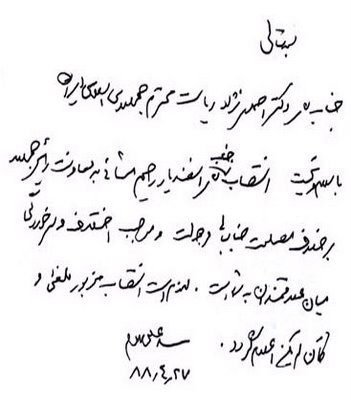 بسمه تعالی
جناب آقای دکتر احمدی نژاد ریاست محترم جمهوری اسلامی ایران
با سلام و تحیت انتصاب جناب آقای اسفندیار رحیم مشائی به معاونت رئیس جمهور
بر خلاف مصلحت جنابعالی و دولت و موجب اختلاف و سرخوردگی
میان علاقمندان به شما است. لازم است انتصاب مزبور ملغی و
کان لم یکن اعلام گردد.
سید علی خامنه‌ای
۸۸٫۴٫۲۷